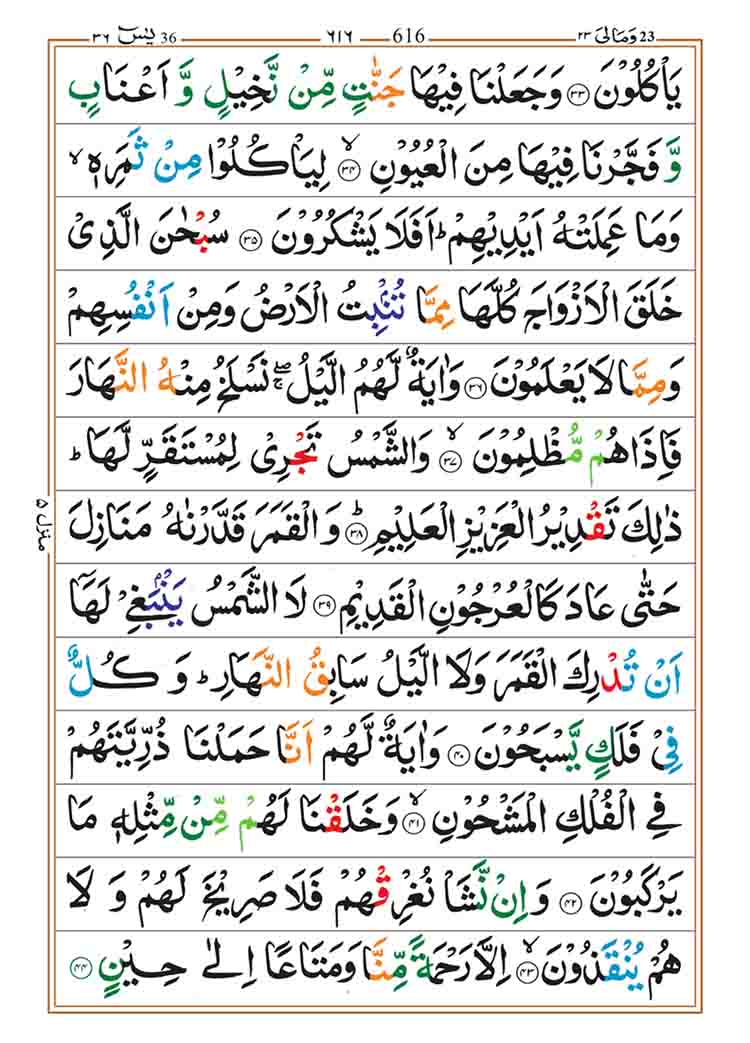 یٰسٓ ٣٦ 36 ٦١٦ 616 وَمَالِیَ ٢٣ 23
یَاْكُلُوْنَ ﴿۳۳﴾ وَجَعَلْنَا فِیْهَا جَنّٰتٍ مِّنْ نَّخِیْلٍ وَّ اَعْنَابٍ
وَّ فَجَّرْنَا فِیْهَا مِنَ الْعُیُوْنِ ﴿۳۴﴾ۙ لِیَاْكُلُوْا مِنْ ثَمَرِهٖ ۙ
وَمَا عَمِلَتْهُ اَیْدِیْهِمْ ؕ اَفَلَا یَشْكُرُوْنَ ﴿۳۵﴾ سُبْحٰنَ الَّذِیْ
خَلَقَ الْاَزْوَاجَ كُلَّهَا مِمَّا تُنْۢبِتُ الْاَرْضُ وَمِنْ اَنْفُسِهِمْ
وَمِمَّا لَا یَعْلَمُوْنَ ﴿۳۶﴾ وَاٰیَةٌ لَّهُمُ الَّیْلُ ۖۚ نَسْلَخُ مِنْهُ النَّهَارَ
فَاِذَا هُمْ مُّظْلِمُوْنَ ﴿۳۷﴾ۙ وَالشَّمْسُ تَجْرِیْ لِمُسْتَقَرٍّ لَّهَا ؕ
ذٰلِكَ تَقْدِیْرُ الْعَزِیْزِ الْعَلِیْمِ ﴿۳۸﴾ؕ وَالْقَمَرَ قَدَّرْنٰهُ مَنَازِلَ
حَتّٰی عَادَ كَالْعُرْجُوْنِ الْقَدِیْمِ ﴿۳۹﴾ لَا الشَّمْسُ یَنْۢبَغِیْ لَهَاۤ
اَنْ تُدْرِكَ الْقَمَرَ وَلَا الَّیْلُ سَابِقُ النَّهَارِ ؕ وَ كُلٌّ
فِیْ فَلَكٍ یَّسْبَحُوْنَ ﴿۴۰﴾ وَاٰیَةٌ لَّهُمْ اَنَّا حَمَلْنَا ذُرِّیَّتَهُمْ
فِی الْفُلْكِ الْمَشْحُوْنِ ﴿۴۱﴾ۙ وَخَلَقْنَا لَهُمْ مِّنْ مِّثْلِهٖ مَا
یَرْكَبُوْنَ ﴿۴۲﴾ وَاِنْ نَّشَاْ نُغْرِقْهُمْ فَلَا صَرِیْخَ لَهُمْ وَ لَا
هُمْ یُنْقَذُوْنَ ﴿۴۳﴾ۙ اِلَّا رَحْمَةً مِّنَّا وَمَتَاعًا اِلٰی حِیْنٍ ﴿۴۴﴾
منزل ۵